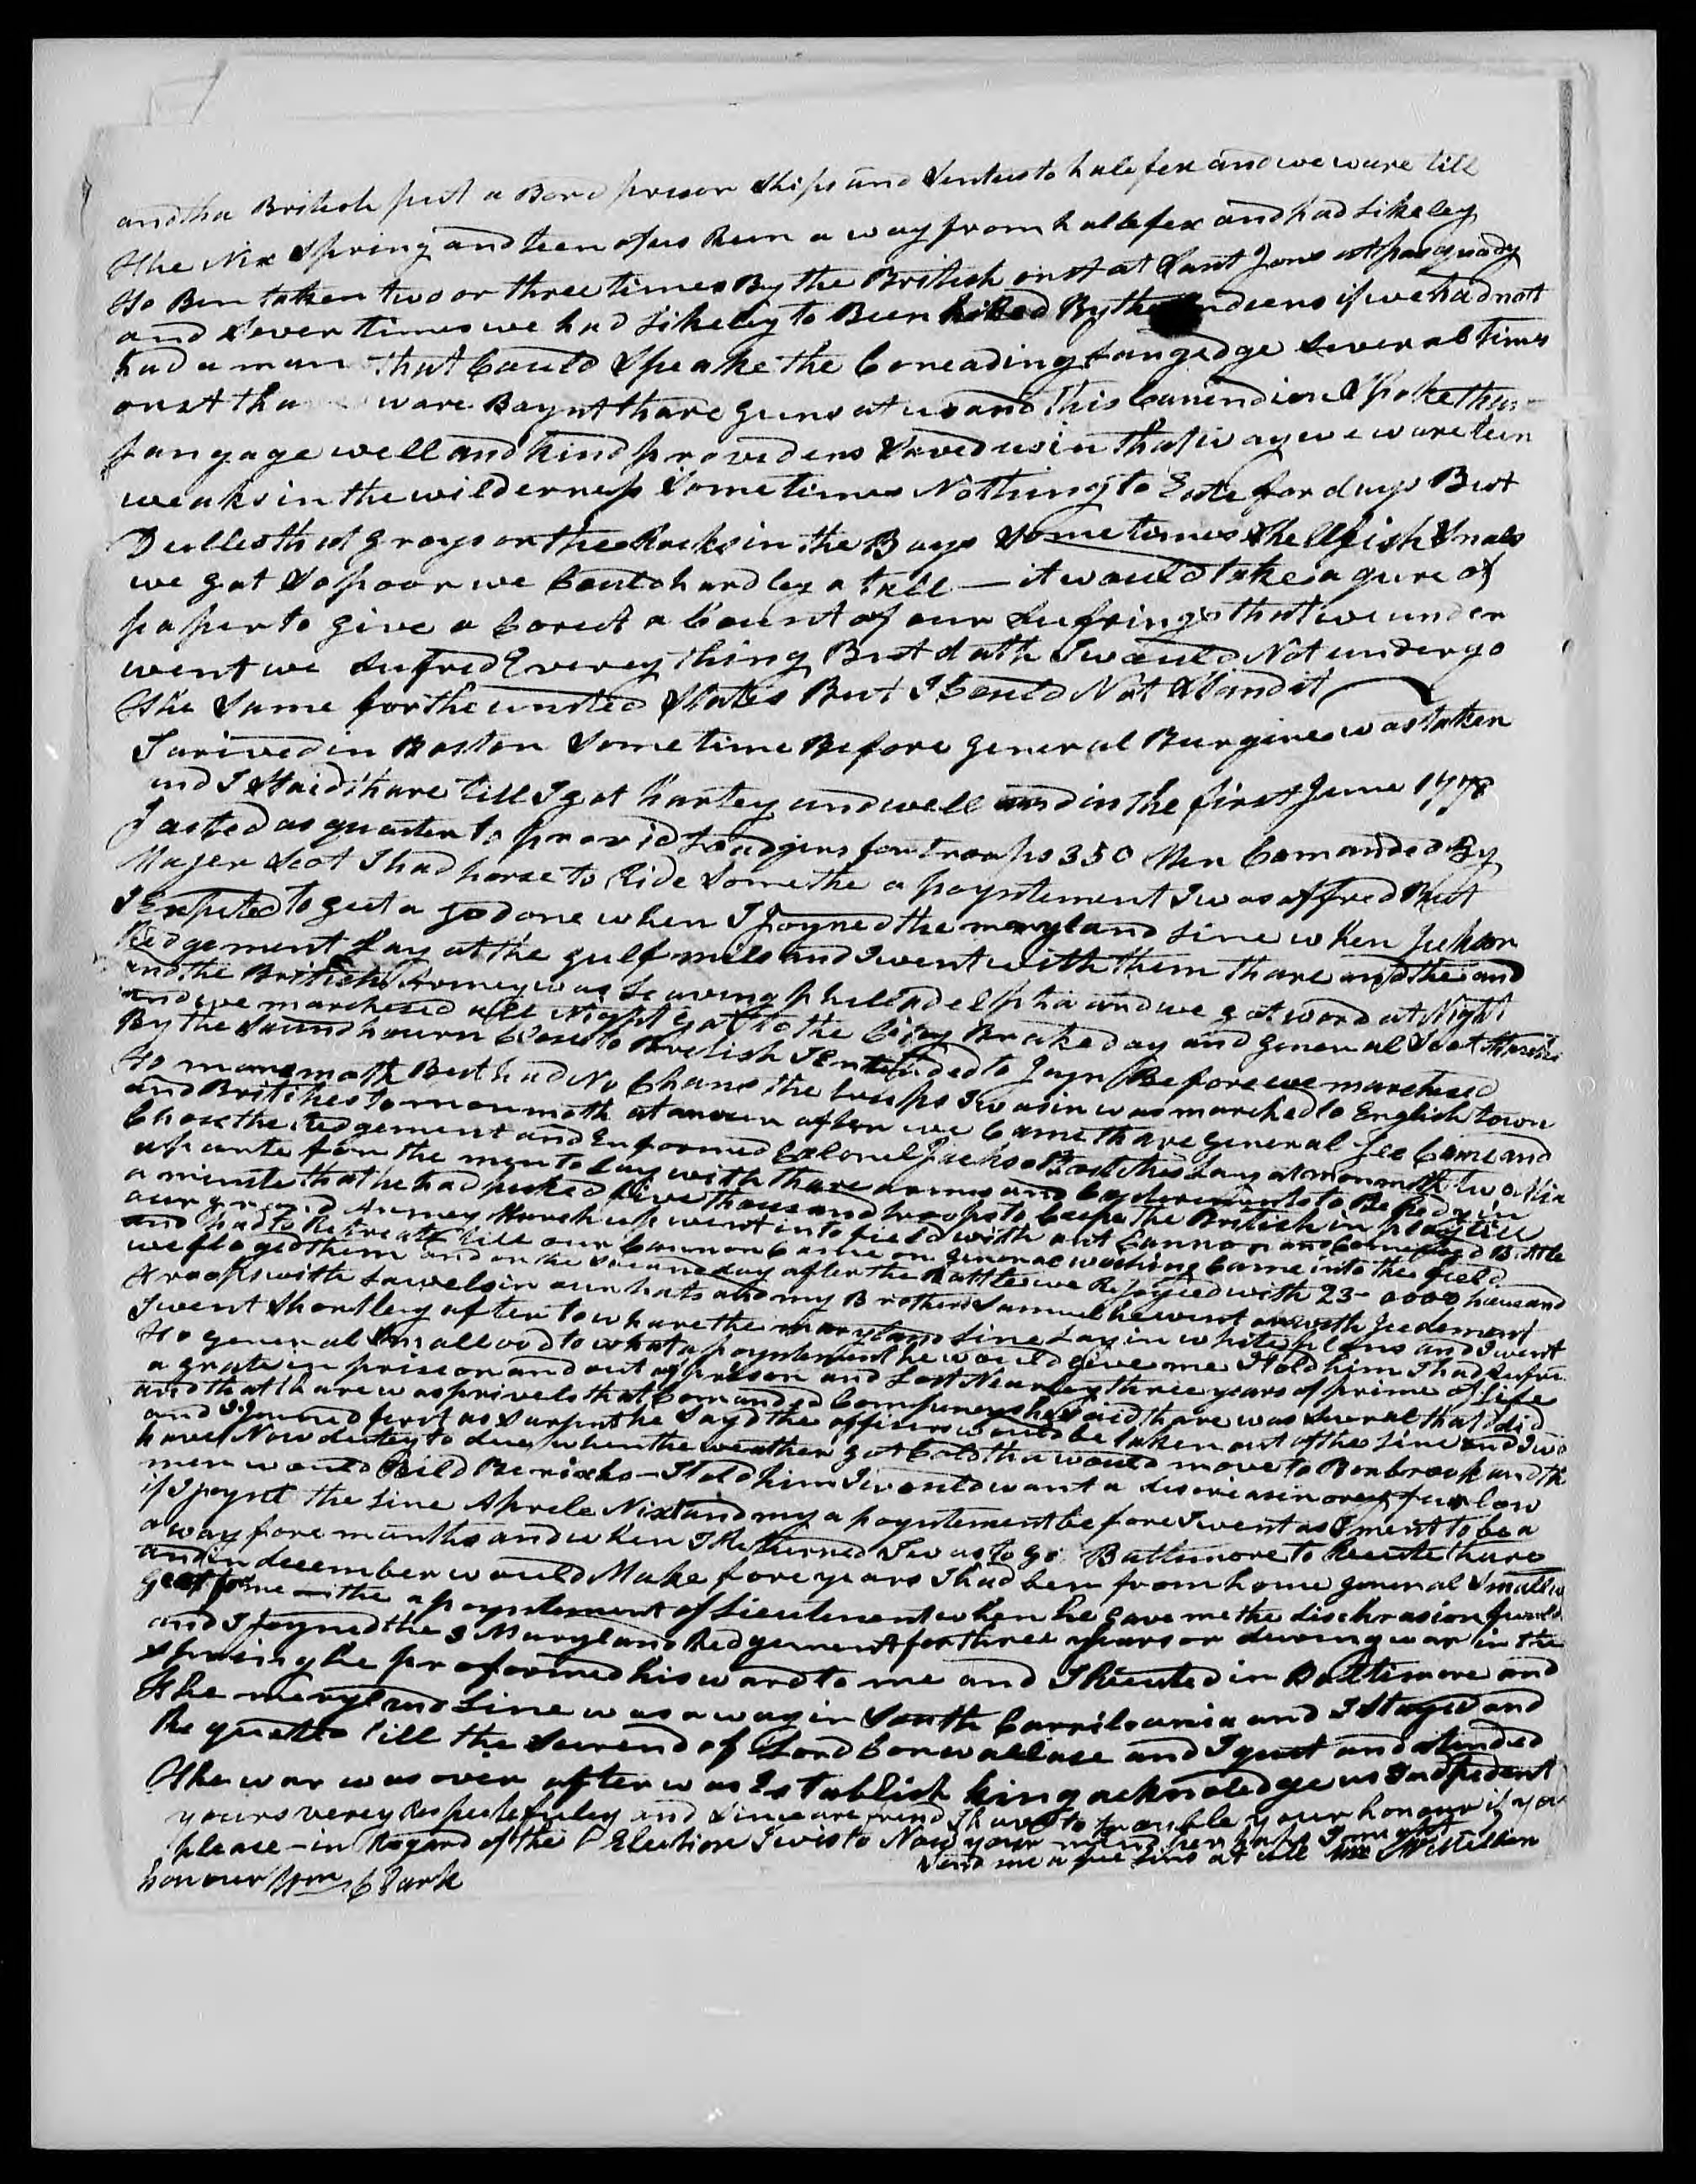 and tha British put a Bord prison Ships and Sent us to halefex and we ware till
the Nix Spring and teen of us Run a way from hallefex and had likeley
to Ben taken two or three times By the British onst at Sant Jons at pasaquady
and Sever times we had likeley to Been killed By the Indiens if we had nott
had a man that Could Speake the Coneading Langedge Several times
onst tha ware Baynt thare guns at us and this Canendien Spoke thar
Langage well and kind providens Saved us in that way we ware teen
weaks in the wilderness Sometimes Nothing to Eate for days But
Dulles that grays on the Rocks in the Bays Sometimes Shellfish Snals
we got So poor we Could hardley a tall — it would take a quire of
paper to give a Corect a Count of our Sufrings that we under
went we Sufred Everey thing But dath I would Not undergo
the Same for the united States But I Could Not Stand it
I arived in Boston Sometime Before general Burgines was taken
and I Staid thare till I got hartey and well and in the first June 1778
I acted as quarter to provid Loadgins for troops 350 Men Comanded By
Majer Scot I had horse to Ride Some the a poyntement I was offred But
I Expected to get a good one when I Joyned the maryland Line when Jackson
Redgement Lay at the gulf mils and I went with them thare and the and
and the British Armey was Leaving philladelphia and we got word at Night
and we marchesed all Night got to the City Brake day and general Scot
By the Sound hourn Close to British I Entended to Jayn Before we marchesed
to monmoth But had No Chans the troops I was in was marched to English town
and Britishes to monmoth at after we Came thare general Lee Came and
Chose the Redgement and Enformed Colonel Jackson British Lay at monmoth two
a parte for the men to Lay with thare arms and to Be Redy in
a minute that he had picked five thousand troops to Ceepe the British in play till
our grand Armey March up went into field with out Cannon and Battle
and had to Retreate till our Cannon Came on general washing Came into the field
we floged them and on the day after the Battle we Rejoyced with 23-0000 thousand
troops with Lawels in our hats and my Brother Samuel he went
I went Shortley after to whare the maryland Line Lay in white plans and I went
to general Smallwod to what a poyntement he would give me I told him I had Sufred
a grate in prison and out of prison and Lost Nearley three years of prime of Life
and that thare was privets that Comanded Compeneys he Said thare was Several that did
and I Joined first as Sarjent he Sayd the officers would be taken out of the Line and I wd
have Now dutey to due when the weather got Cold tha would move to Bonbrook and th
men would Bild Barixks — I told him I would want a or furlow
if I Joynt the Line Aprele Nixt and my a poyntement before I went as I ment to be a
away fore months and when I Returned I was to go Baltimore to Recrute thare
and in december would Make fore years I had ben from home general Smallw
me the a poyntement of Lieutenent when he gave me the would
and I Joyned the 3 Maryland Redgement for three years or during war in the
Spring he proformed his word to me and I Recuted in Baltimore and
the maryland Line was away in South Carrilounia and I Stayed and
Re till the Surend of Lord Cornwallase and I quit and atended
the war was over after was Establish king acknoledge us Indpedent
yours verey Respectefuley and Sinceare frend I have to trouble your honour if you
please — in Regard of the P Election I wis to Now your mind
Send me a few Lins at all
honour Wm Clark